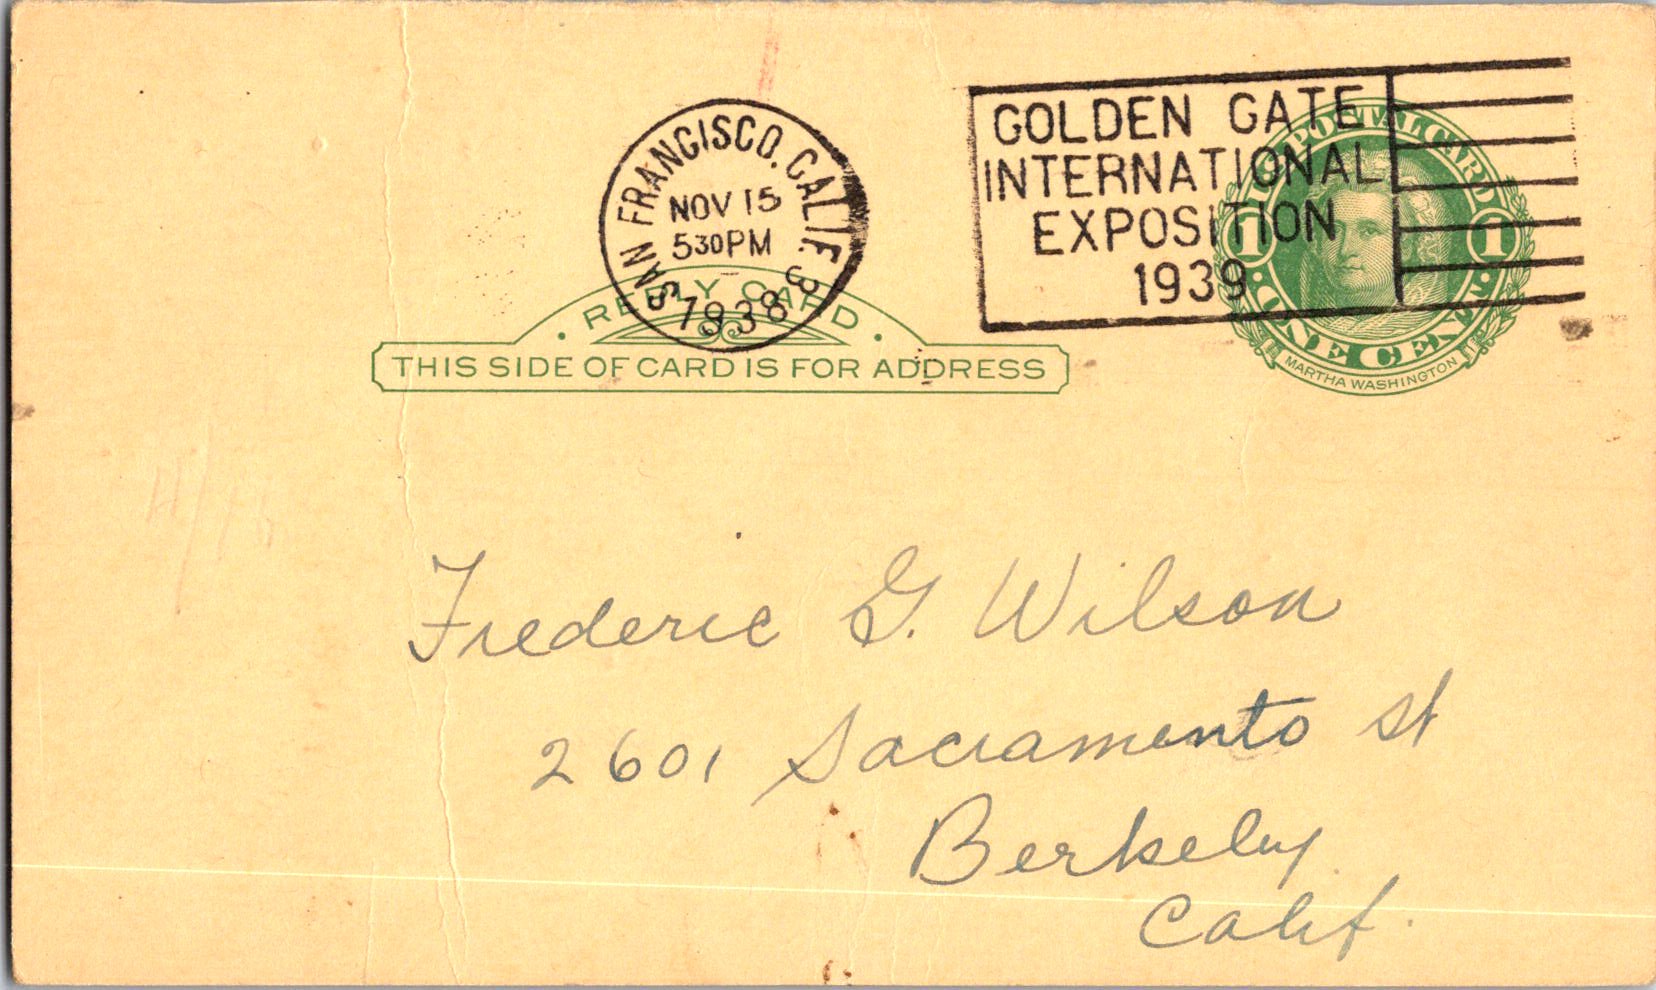 SAN FRANCISCO, CALIF. 3
NOV 15
530PM
1938
GOLDEN GATE
INTERNATIONAL
EXPOSITION
1939
POSTAL CARD
1 1
ONE CENT
MARTHA WASHINGTON
REPLY CARD
THIS SIDE OF CARD IS FOR ADDRESS
Frederic G. Wilson
2601 Sacramento St
Berkeley
Calif.